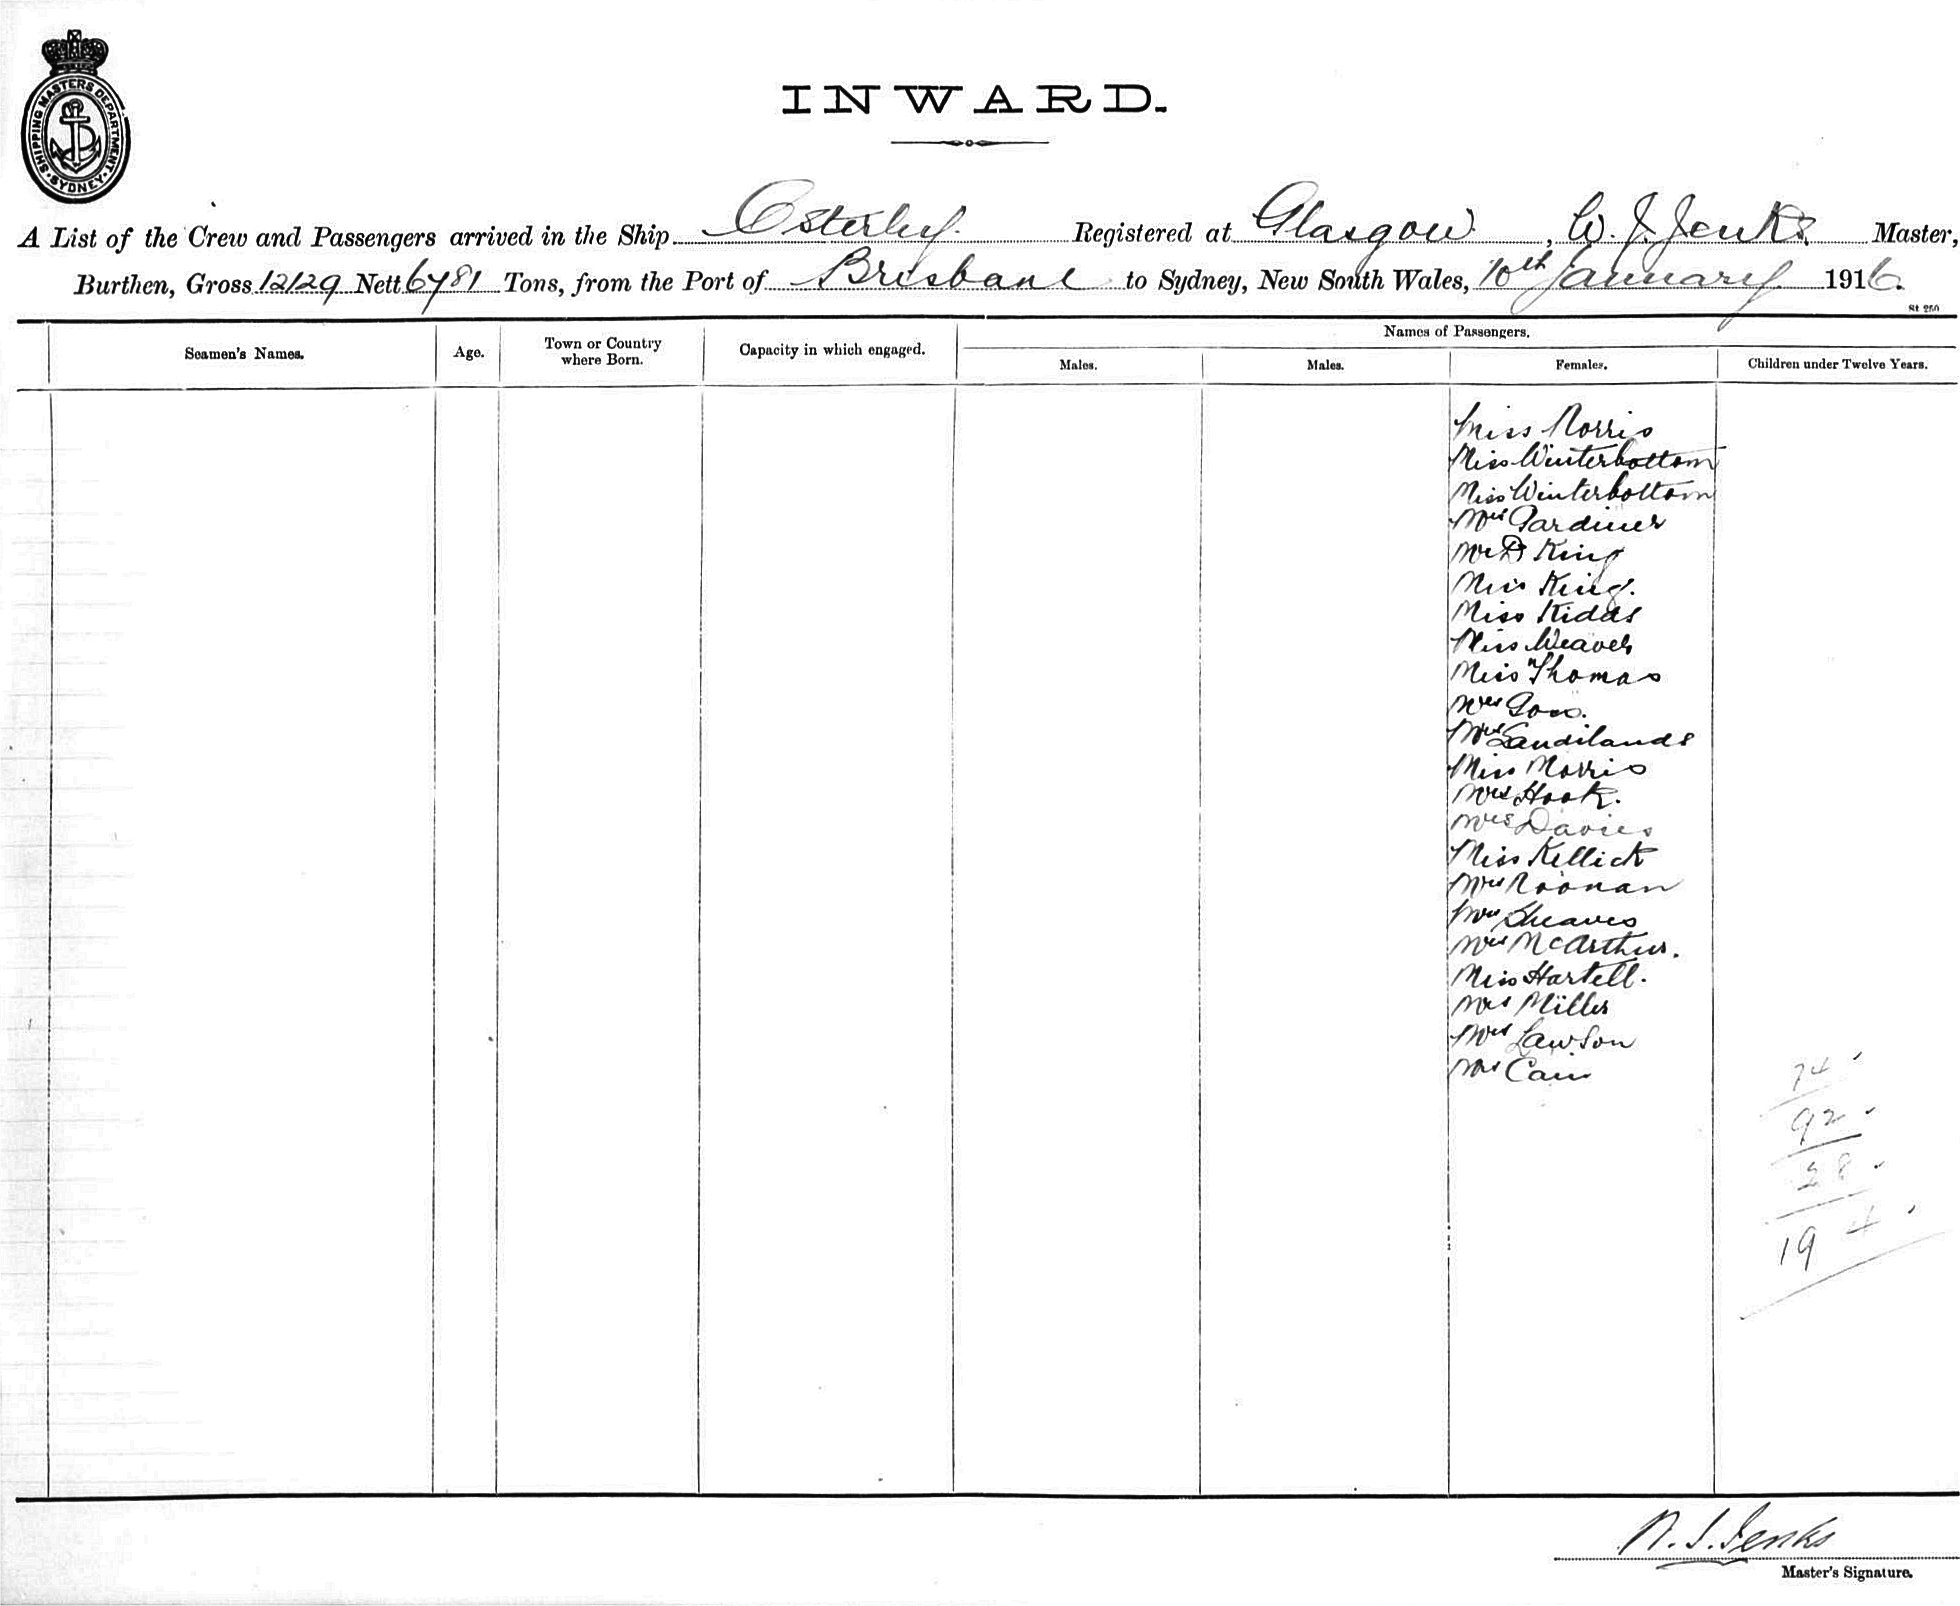 SHIPPING MASTERS DEPARTMENT
SYDNEY
INWARD.
A List of the Crew and Passengers arrived in the Ship Osterley. Registered at Glasgow, W. J. Jenks. Master,
Burthen, Gross 12129 Nett 6781 Tons, from the Port of Brisbane to Sydney, New South Wales, 10th January 1916.
St 250
Names of Passengers.
Seamen's Names. Age. Town or Country where Born. Capacity in which engaged. Males. Males. Females. Children under Twelve Years.
Miss Norris
Miss Winterbottom
Miss Winterbottom
Mrs Gardiner
King
Miss King.
Miss Kidds
Miss Weaver
Miss Thomas
Mrs Goss.
Mrs Sandilands
Miss Morris
Mrs Hook.
Mrs Davies
Miss Killick
Mrs Noonan
Mrs Sheaves
Mrs McArthur.
Miss Hartell.
Mrs Miller
Mrs Lawson
Mrs Cain
74
92
28
194
W. J. Jenks
Master's Signature.